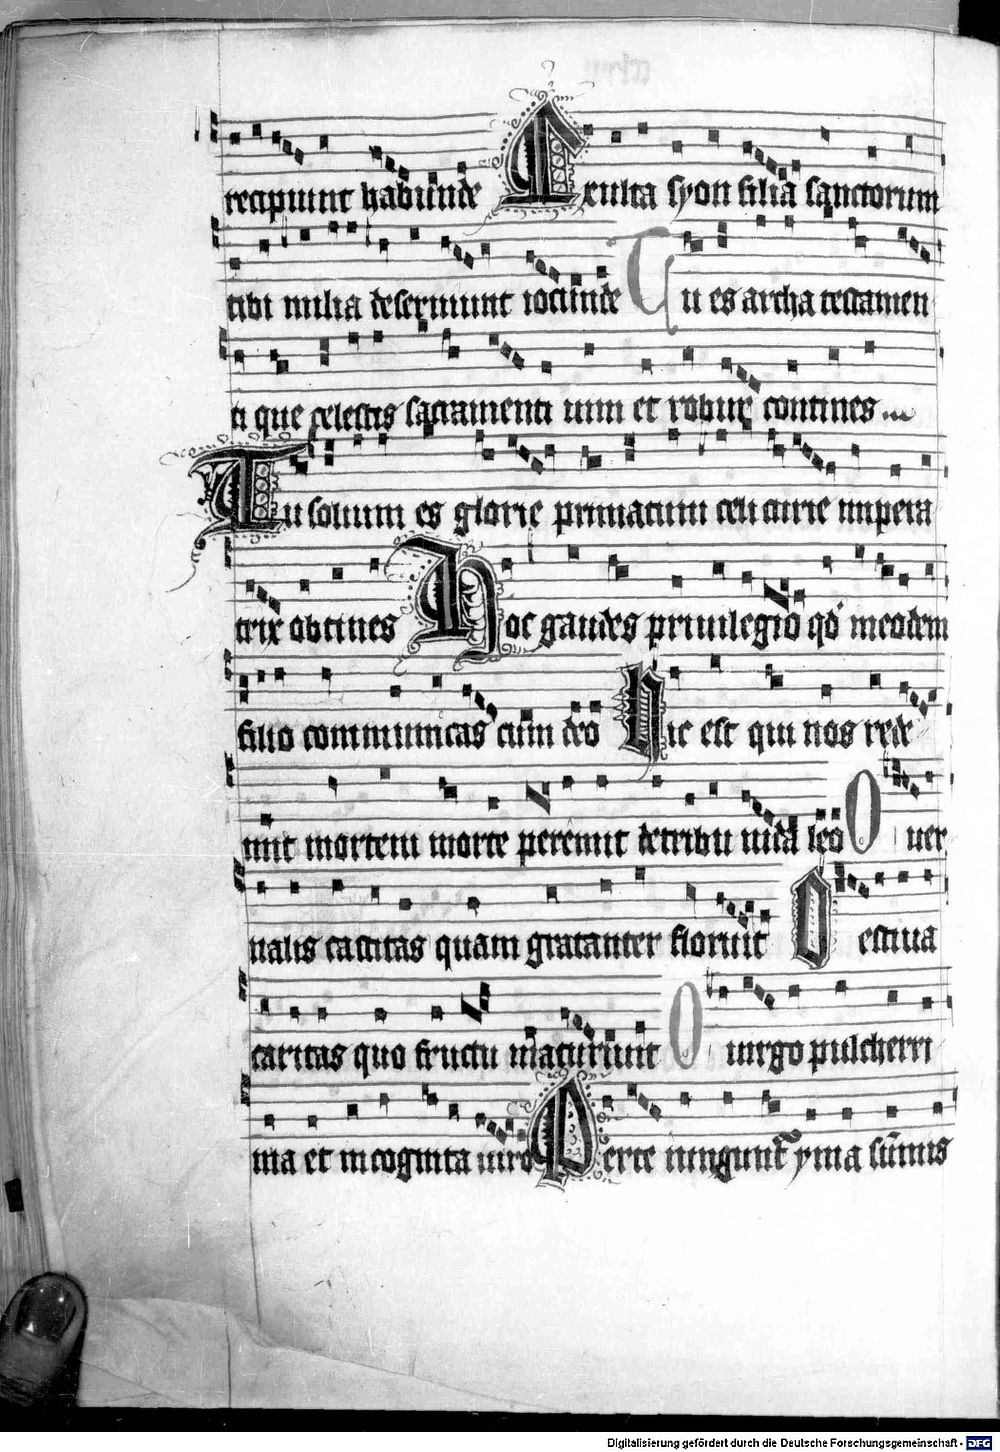 recipiunt habunde Exulta syon filia sanctorum
tibi milia deseruiunt iocunde Tu es archa testamen
ti que celestis sacramenti uim et robur contines
Tu solium es glorie primatum celi curie impera
trix obtines Hoc gaudes priuilegio qd meodem
filio communicas cum deo Hic est qui nos rede
mit mortem morte peremit detribu iuda leo O uer
nalis castitas quam gratanter floruit O estiua
caritas quo fructu maturiuit O uirgo pulcherri
ma et incognita uiro Perte iungunt yma sūmis
Digitalisierung gefördert durch die Deutsche Forschungsgemeinschaft - DFG